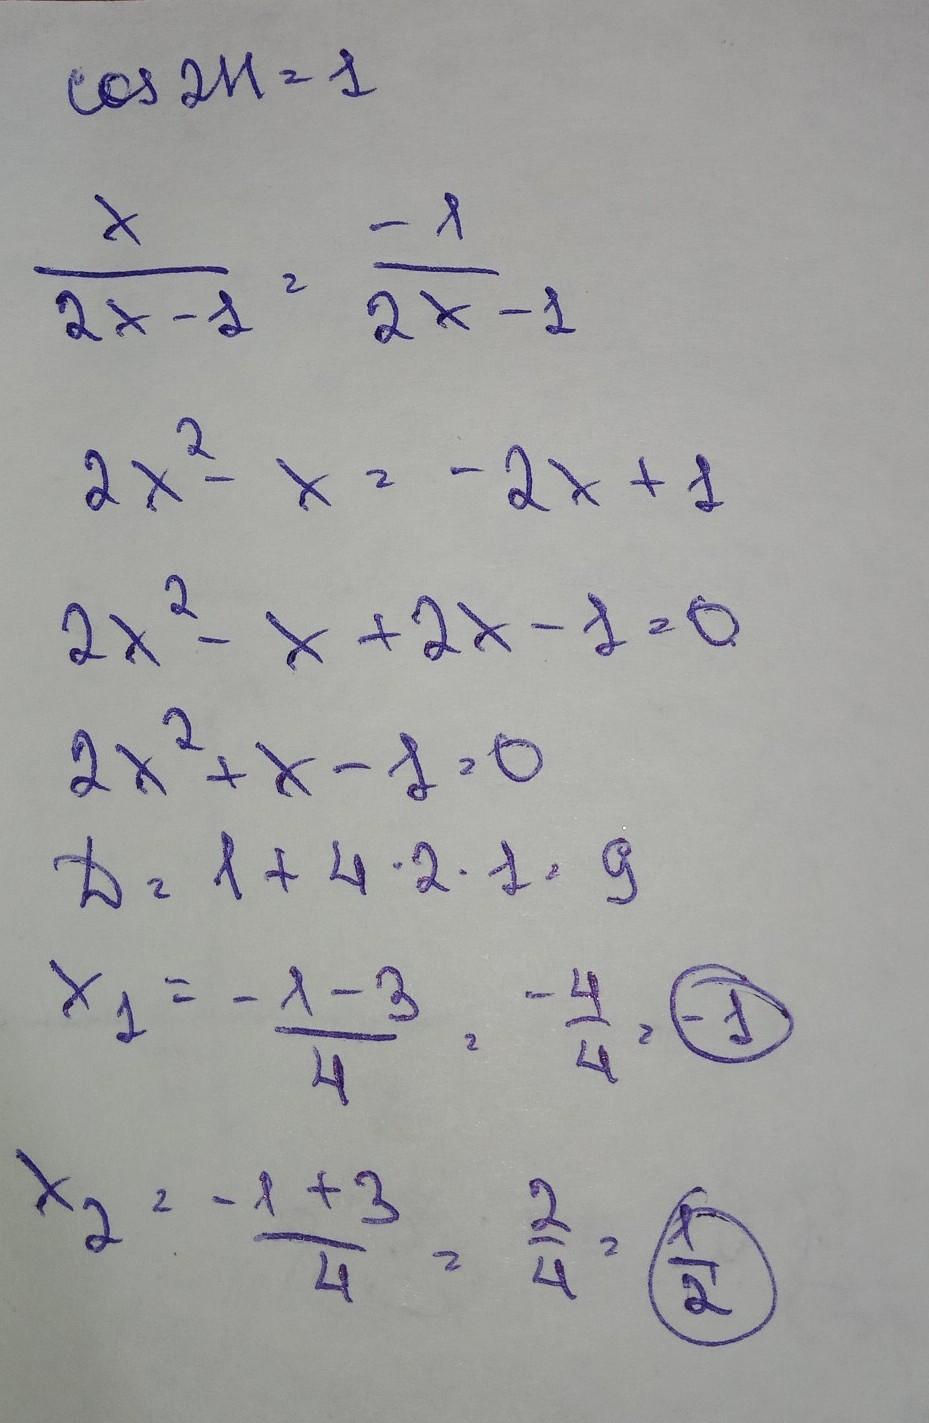 cos 2π = 1
x/(2x-1) = -1/(2x-1)
2x² - x = -2x + 1
2x² - x + 2x - 1 = 0
2x² + x - 1 = 0
D = 1 + 4 · 2 · 1 = 9
x₁ = (-1-3)/4 = -4/4 = -1
x₂ = (-1+3)/4 = 2/4 = 1/2